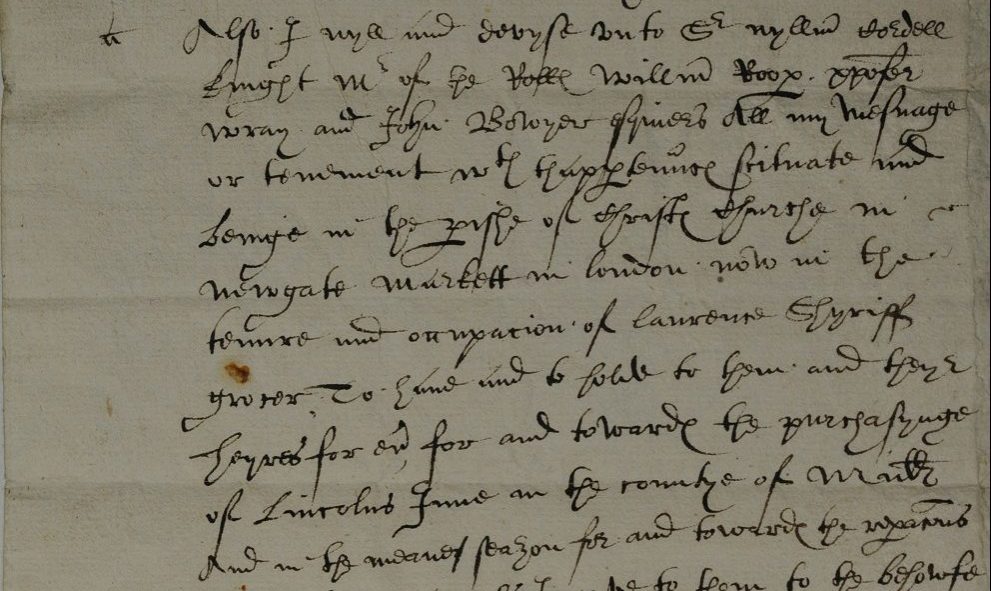 Also I wyll and devyse vnto Sr wyllm Cordell
knight Mr of the Rolls willm Roop. xpofer
wray and John Bowyer esquiers All my mesuage
or tenement wth thapptennces scituate and
beinge in the pishe of Christs Churche in
newgate markett in london now in the
tenure and occupacion of laurence Shyriff
grocer To haue and to holde to them and theyr
heyres for eu for and towards the purchasynge
of Lincolns Inne in the countye of Midd
And in the meane season for and towards the repacons
to them to the behowfe